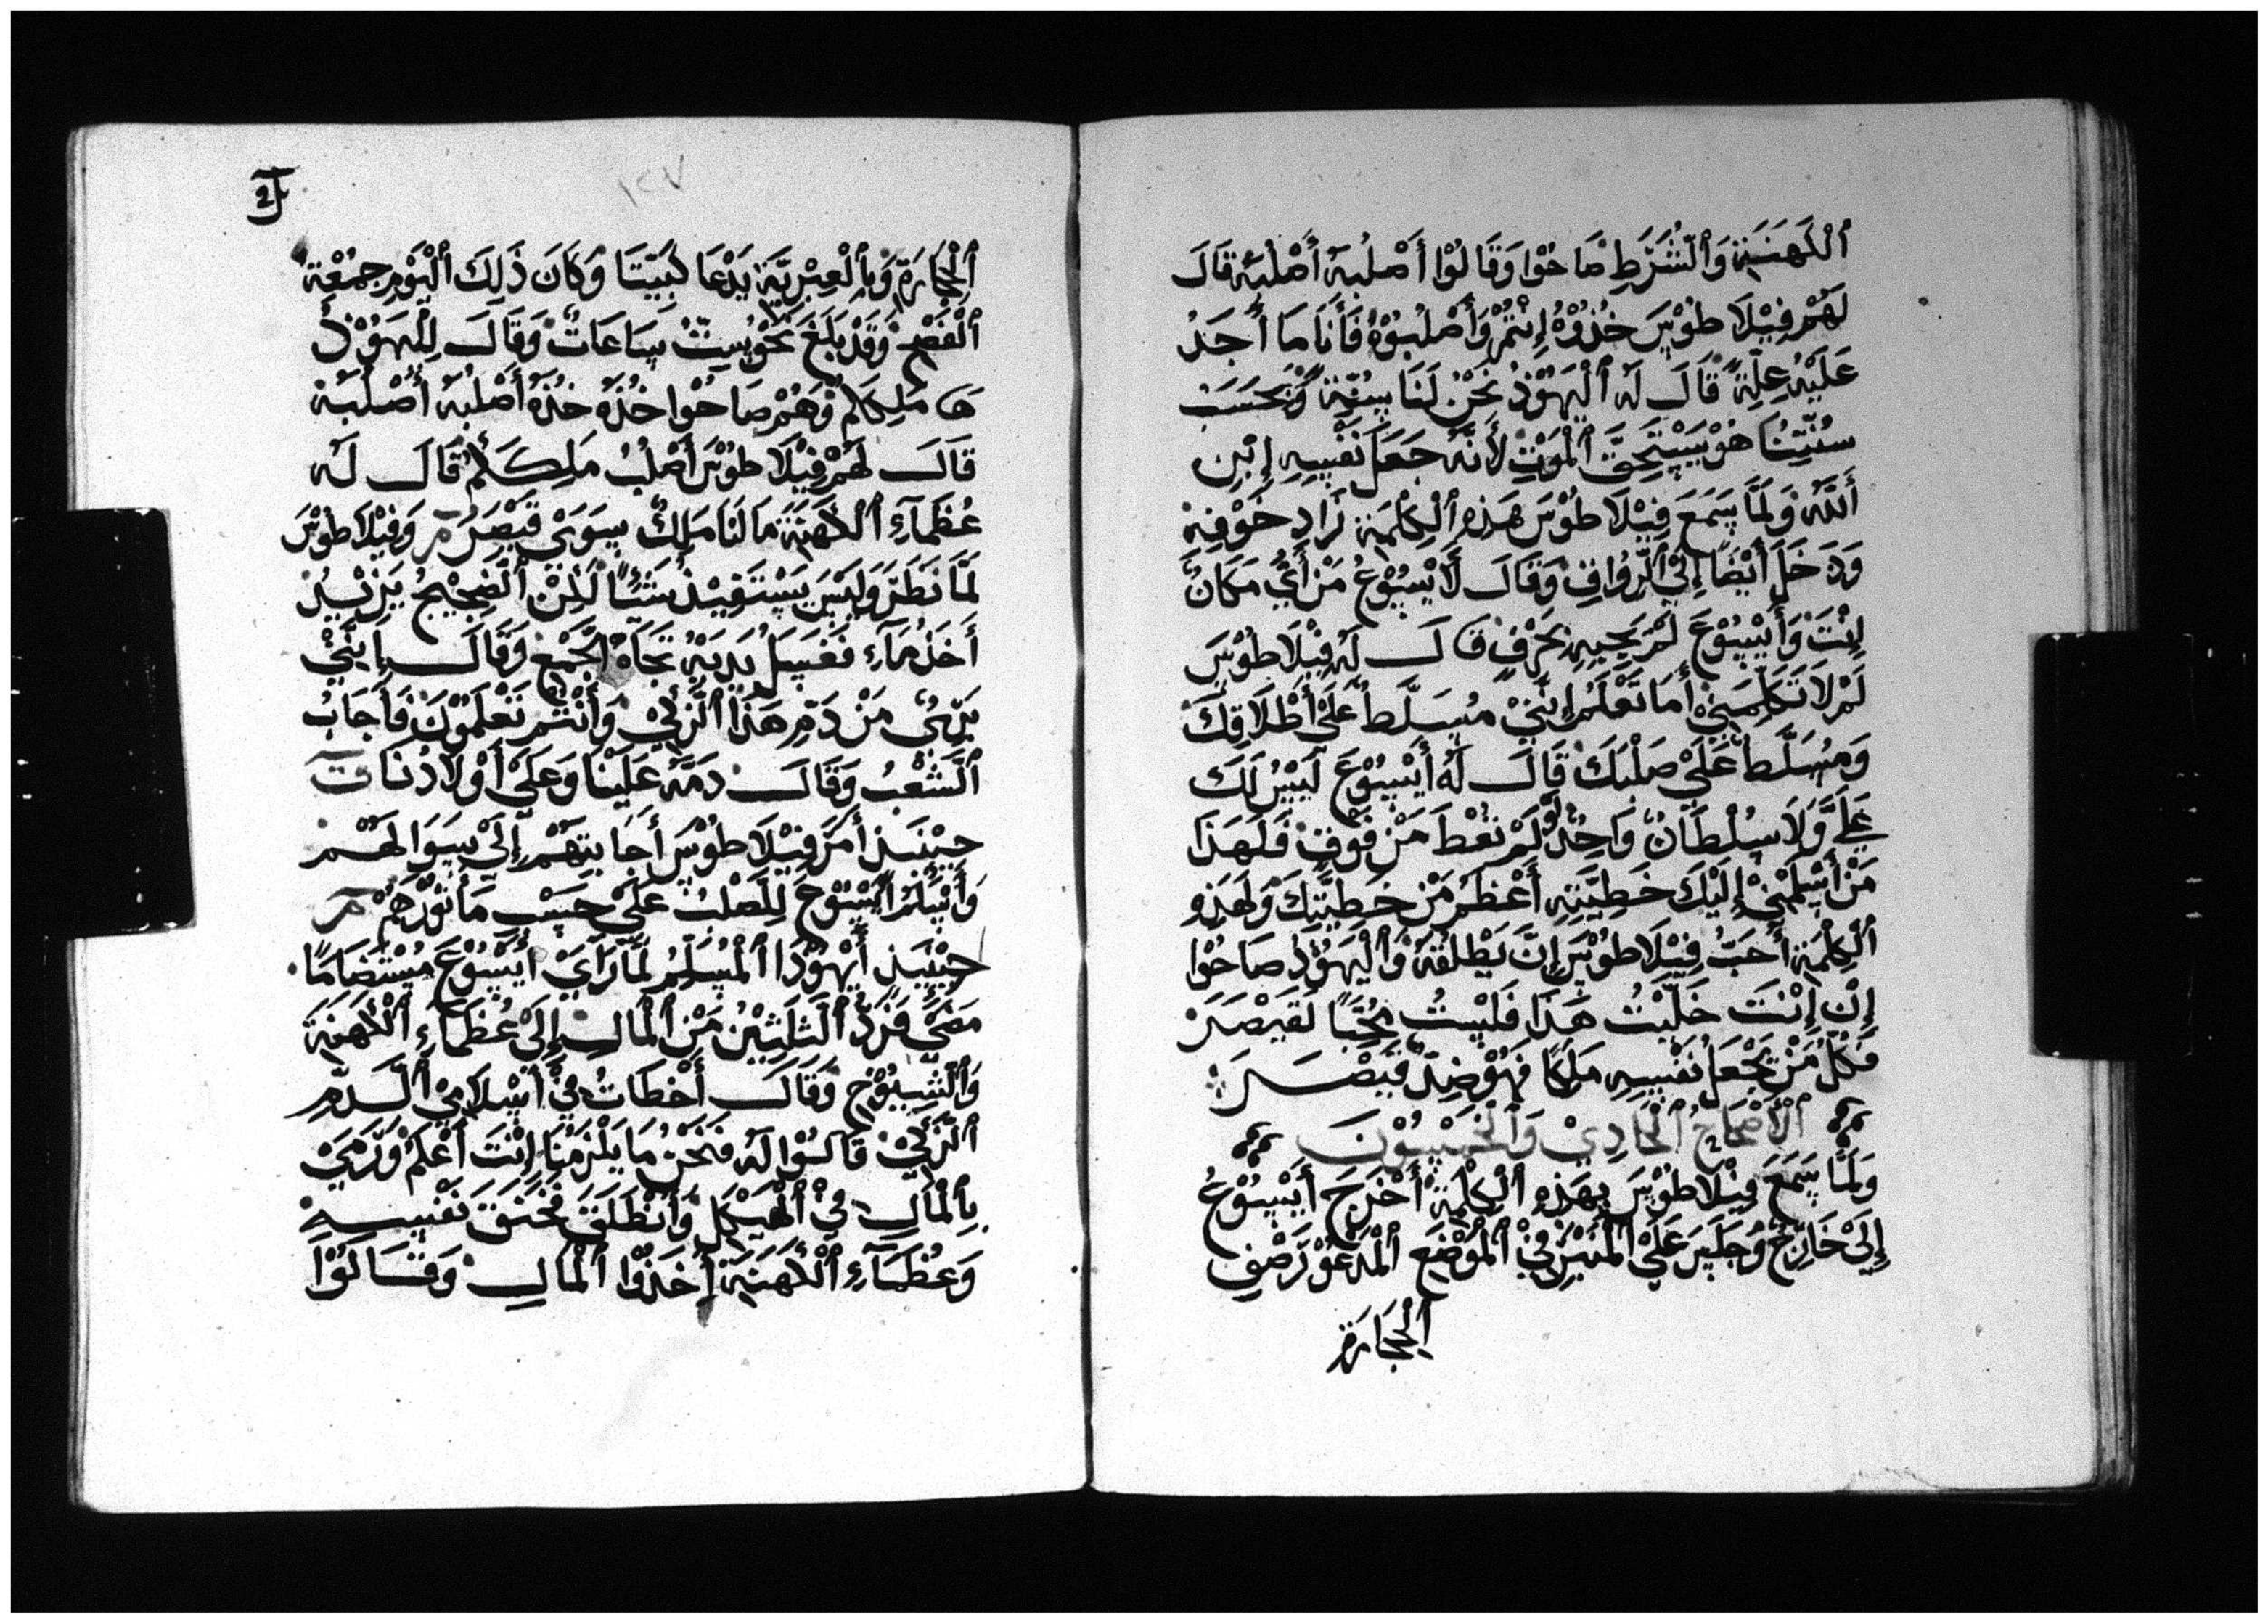 ٱلْكَهَنَةِ وَٱلشُّرَطِ صَاحُوْا وَقَالُوْا أَصْلُبُهُ أَصْلُبُهُ قَالَ
لَهُمْ فِيْلَاطُوْسَ خُذُوْهُ إِنْتُمْ وَأَصْلُبُوْهُ فَأَنَا مَا أَجَدُ
عَلَيْهِ عِلَّةً قَالَ لَهُ ٱلْيَهُوْدُ نَحْنُ لَنَا سُنَّةٌ وَبْحَسَبْ
سُنَّتِنَا هُوْ يَسْتَحِقَّ ٱلْمَوْتِ لأَنَّهُ جَعَلَ نَفْسِهِ إِبْنِ
ٱللّٰهِ وَلَمَّا سَمَعَ فِيْلَاطُوْسَ هَذِهِ ٱلْكِلْمَةِ زَادِ خَوْفِهِ
وَدَخَلَ أَيْضًا إِلَىْ ٱلرُّوَاقِ وَقَالَ لَأَيْسُوْعُ مَنْ أَيِّ مَكَانٍ
إِنْتَ وَأَيْسُوْعَ لَمْ يَجِيبِهِ بَحَرْفٍ قَالَ لَهُ فِيْلَاطُوْسَ
لَمْ لَا تَكَلِّمَنِيْ أَمَا تَعْلَمُ إِنَّنِيْ مُسَلَّطٌ عَلَىْ أَطْلَاقِكَ
وَمُسَلَّطٌ عَلَىْ صَلْبِكَ قَالَ لَهُ أَيْسُوْعَ لَيْسَ لَكَ
عَلَيَّ وَلَا سُلْطَانٌ وَاحِدٌ لَوْ لَمْ تُعْطَ مَنْ فَوْقٍ فَلَهَذَا
مَنْ أَسْلَمْنِيْ إِلَيْكَ خَطِيَّتِهِ أَعْظَمُ مَنْ خَطِيَّتِكَ وَلَهَذِهِ
ٱلْكِلْمَةِ أَحَبَّ فِيْلَاطُوْسَ إِنَّ يَطْلُقُهُ وَٱلْيَهُوْدُ صَاحُوْا
إِنْ إِنْتَ خَلَّيْتُ هَذَا فَلَيْسْتُ مُحُبًّا لَقَيْصَرَ
فَكُلْ مَنْ يَجْعَلُ نَفْسِهِ مَلِكًا فَهُوْ ضِدُّ قَيْصَرَ
ٱلْأَصْحَاحُ ٱلْحَادِيْ وَٱلْخَمْسُوْنَ
وَلَمَّا سَمَعَ فِيْلَاطُوْسَ بِهَذِهِ ٱلْكِلْمَةْ أَخْرَجَ أَيْسُوْعُ
إِلَىْ خَارِجْ وَجَلَسَ عَلَىْ ٱلْمَنْبَرْ فِيْ ٱلْمَوْضَعِ ٱلْمَدْعَوْ رَصْفِ
ٱلْحِجَارَةِ
ٱلْحِجَارَةِ وَبِٱلْعِبْرِيَّةِ يَدْعَا كَبِيْتَا وَكَانَ ذَلِكَ ٱلْيَوْمِ جِمُعْةِ
ٱلْفَصْحِ وَقَدْ بَلَغَ نَحْوُ سِتُّ سَاعَاتٌ وَقَالَ لِلْيَهُوْدُ
هَا مَلِكِكُمْ وَهُمْ صَاحُوْا خُذْهُ خُذْهُ أَصْلُبُهُ أَصْلُبُهُ
قَالَ لَهُمْ فِيْلَاطُوْسَ أَصْلُبُ مَلِكَكُمْ قَالَ لَهُ
عُظَمَآءِ ٱلْكَهَنَةَ مَا لَنَا مَلِكٌ سِوَىْ قَيْصَرَ مر وَفِيْلَاطُوْسَ
لَمَّا نَظَرَ وَلَيْسَ يَسْتَفِيْدُ شَئًا لَٰكِنْ ٱلضَّجِيْجُ يَزِيْدُ
أَخَذْ مَآءِ فَغَسَلُ يَدَيْهُ تَجَاهَ ٱلْجَمْعِ وَقَالَ إِنَّنِيْ
بَرِّئُ مَنْ دَمِ هَذَا ٱلزَّكِيْ وَأَنْتُمْ تَعْلَمُوْنَ فَأَجَابُ
ٱلشَّعْبُ وَقَالَ دَمَّهُ عَلَيْنَا وَعَلَىْ أَوْلَادُنَا ت
حِيْنَئِذٍ أَمَرَ فِيْلَاطُوْسَ أَجَابِتِهَمْ إِلَىْ سِوَالَهُمْ
وَأَسْلَمُ أَيْسُوْعَ لِلصَّلْبْ عَلَىْ حَسَبِ مَأْثُوْرَهُمْ مر
حِيْنَئِذٍ أَيْهُوْدَا ٱلْمُسَلِّمُ لَمَّا رَآىْ أَيْسُوْعَ مُسْتَضَامًا
مَضَىْ فَرَدَّ ٱلثَّلَثِيْنُ مَنْ ٱلْمَالِ إِلَىْ عُظَمَآءِ ٱلْكَهَنَةَ
وَٱلشِّيُوْخِ وَقَالَ أَخْطَاتُ فِيْ أَسْلَامِيْ ٱلدَّمِ
ٱلزَّكِيْ قَالُوْا لَهُ فَنَحْنُ مَا يَلْزَمْنَا إِنْتَ أَعْلَمْ وَرَمَىْ
بِٱلْمَالِ فِيْ ٱلْهَيْكَلِ وَٱنْطَلَقَ فَخَنَقَ نَفْسِهِ
وَعُظَمَآءِ ٱلْكَهَنَةِ أَخَذُوْا ٱلْمَالِ وَقَالُوْا